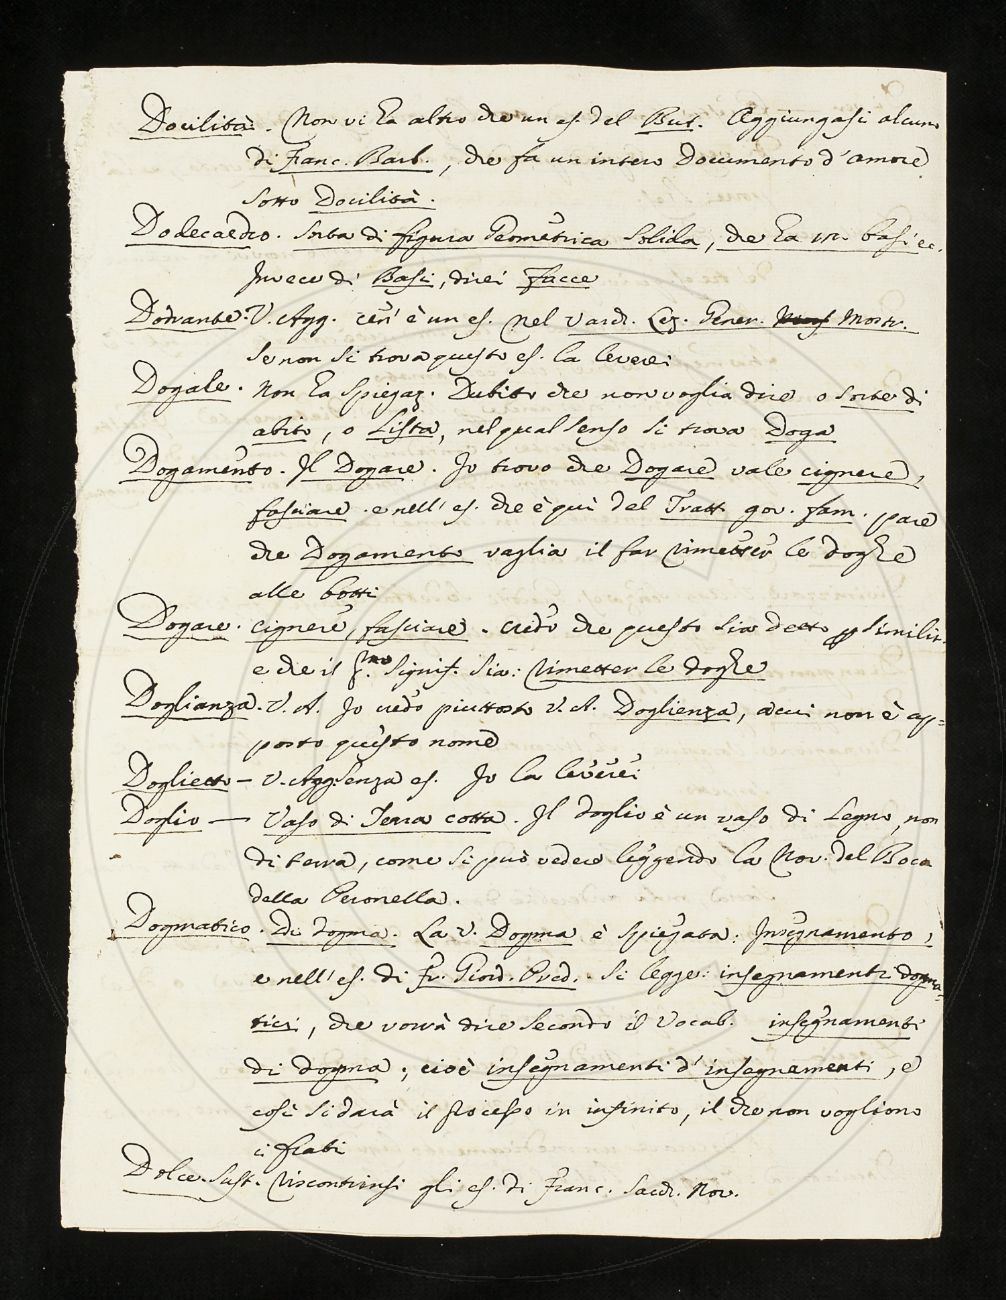 Docilità. Non vi ha altro che un es. del But. Aggiungasi alcuno
di Franc. Barb., che fa un intero Documento d'amore
sotto Docilità.
Dodecaedro. Sorta di figura Geometrica solida, che ha 12. basi ec.
Invece di Basi, direi facce
Dodrante. V. Agg. cen' è un es. nel Varch. Lez. Gener. Mostr.
Se non si trova questo es. la leverei
Dogale. Non ha spiegaz. Dubito che non voglia dire o sorte di
abito, o Lista, nel qual senso si trova Doga
Dogamento. Il Dogare. Io trovo che Dogare vale cignere,
fasciare. e nell' es. che è qui del Tratt. gov. fam. pare
che Dogamento vaglia il far rimetter le doghe
alle botti
Dogare. Cignere, fasciare. credo che questo sia detto p similit.
e che il p.mo signif. sia: Rimetter le doghe
Doglianza. V. A. Io credo piuttosto V. A. Doglienza, a cui non è ap=
posto questo nome
Doglietto — V. Agg. senza es. Io la leverei
Doglio — Vaso di Terra cotta. Il doglio è un vaso di Legno, non
di terra, come si può vedere leggendo la Nov. del Bocc
della Peronella.
Dogmatico. Di dogma. La V. Dogma è spiegata: Insegnamento,
e nell' es. di Fr. Giord. Pred. si legge: insegnamenti dogma=
tici, che vorrà dire secondo il Vocab. insegnamenti
di dogma; cioè insegnamenti d'insegnamenti, e
così si darà il processo in infinito, il che non vogliono
i frati
Dolce. Sust. Riscontrinsi gli es. di Franc. Sacch. Nov.